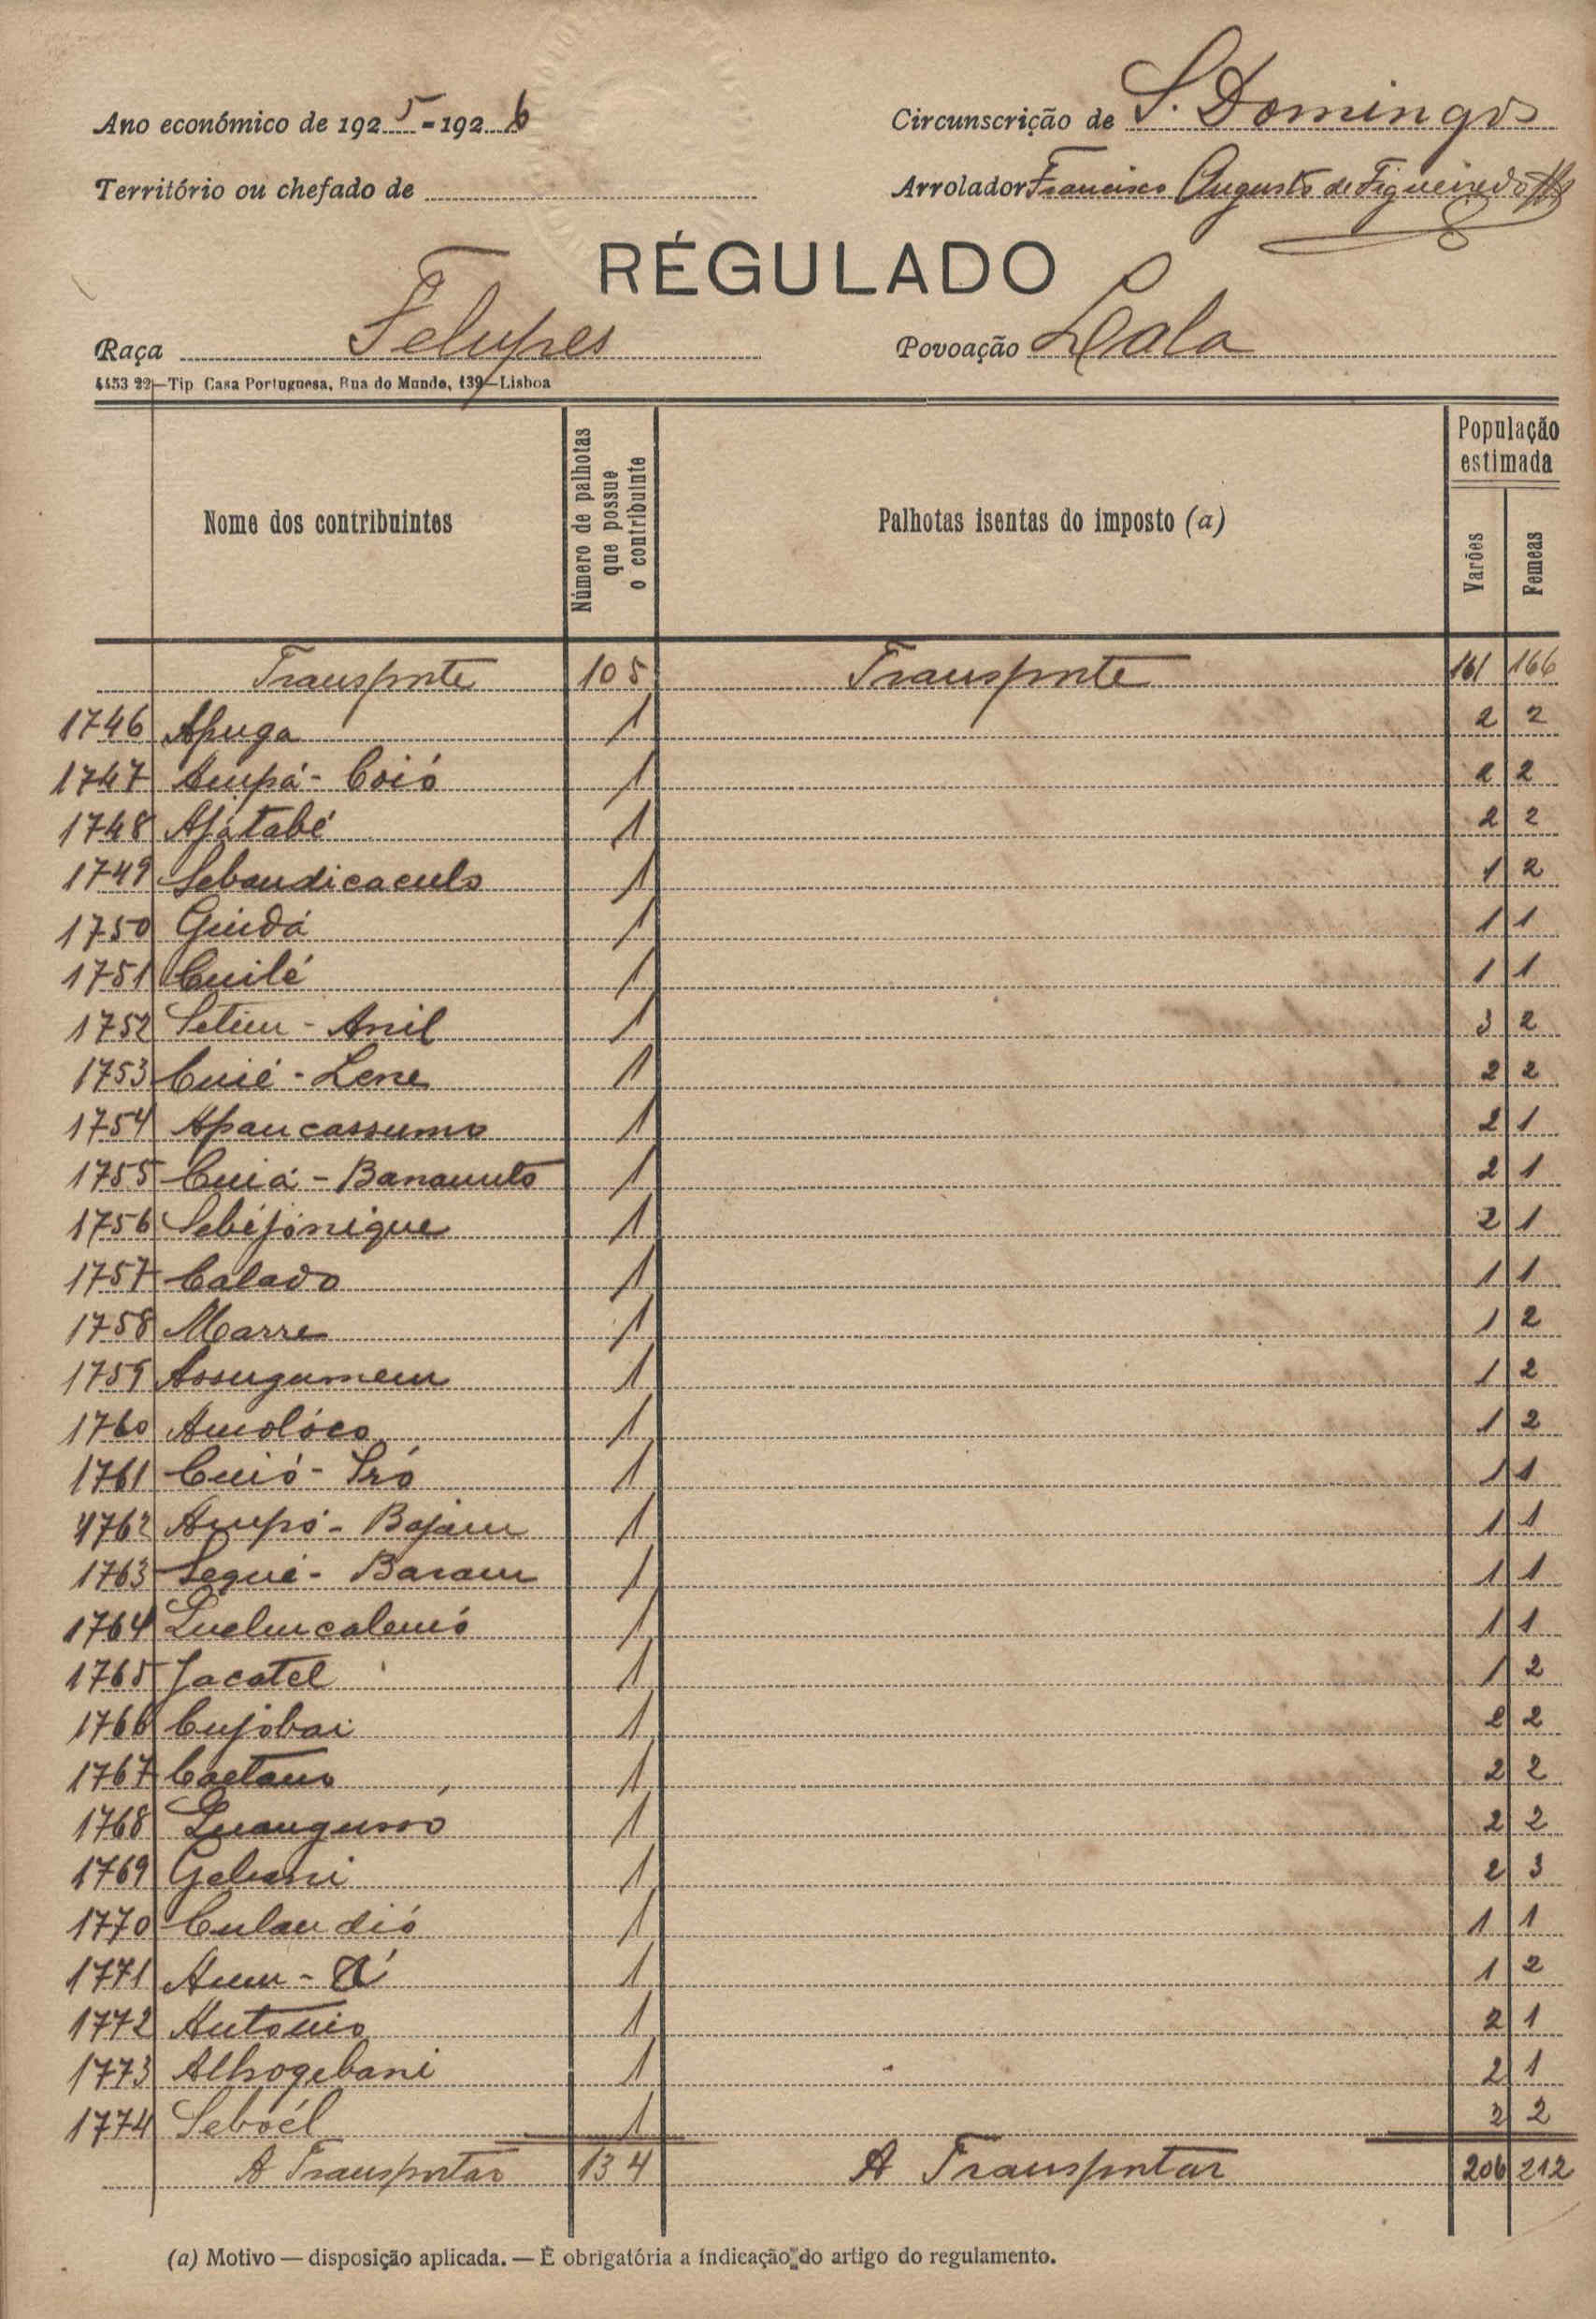 Ano económico de 1925-1926
Circunscrição de S. Domingos
Território ou chefado de
Arrolador Francisco Augusto de Figueiredo
RÉGULADO
Raça Felupes
Povoação Lala
4453 22—Tip Casa Portuguesa, Rua do Mundo, 139—Lisboa
Nome dos contribuintes
Número de palhotas que possue o contribuinte
Palhotas isentas do imposto (a)
População estimada
Varões
Femeas
Transporte 105 Transporte 161 166
1746 Apuga 1 2 2
1747 Ampá - Coió 1 2 2
1748 Ajatabé 1 2 2
1749 Sebandicaculo 1 1 2
1750 Guidá 1 1 1
1751 Cuilé 1 1 1
1752 Setim - Anil 1 3 2
1753 Cuié - Lene 1 2 2
1754 Apancassumo 1 2 1
1755 Cuiá - Banamuto 1 2 1
1756 Sebéjónique 1 2 1
1757 Calado 1 1 1
1758 Marre 1 1 2
1759 Assugumem 1 1 2
1760 Amolóco 1 1 2
1761 Cuió - Sró 1 1 1
1762 Ampó - Bajam 1 1 1
1763 Segué - Baram 1 1 1
1764 1 1 1
1765 Jacatel 1 1 2
1766 Cujobai 1 2 2
1767 Caetano 1 2 2
1768 1 2 2
1769 Gebani 1 2 3
1770 Culandió 1 1 1
1771 1 1 2
1772 Antonio 1 2 1
1773 Alhogebani 1 2 1
1774 Seboél 1 2 2
A Transportar 134 A Transportar 206 212
(a) Motivo — disposição aplicada. — É obrigatória a indicação do artigo do regulamento.